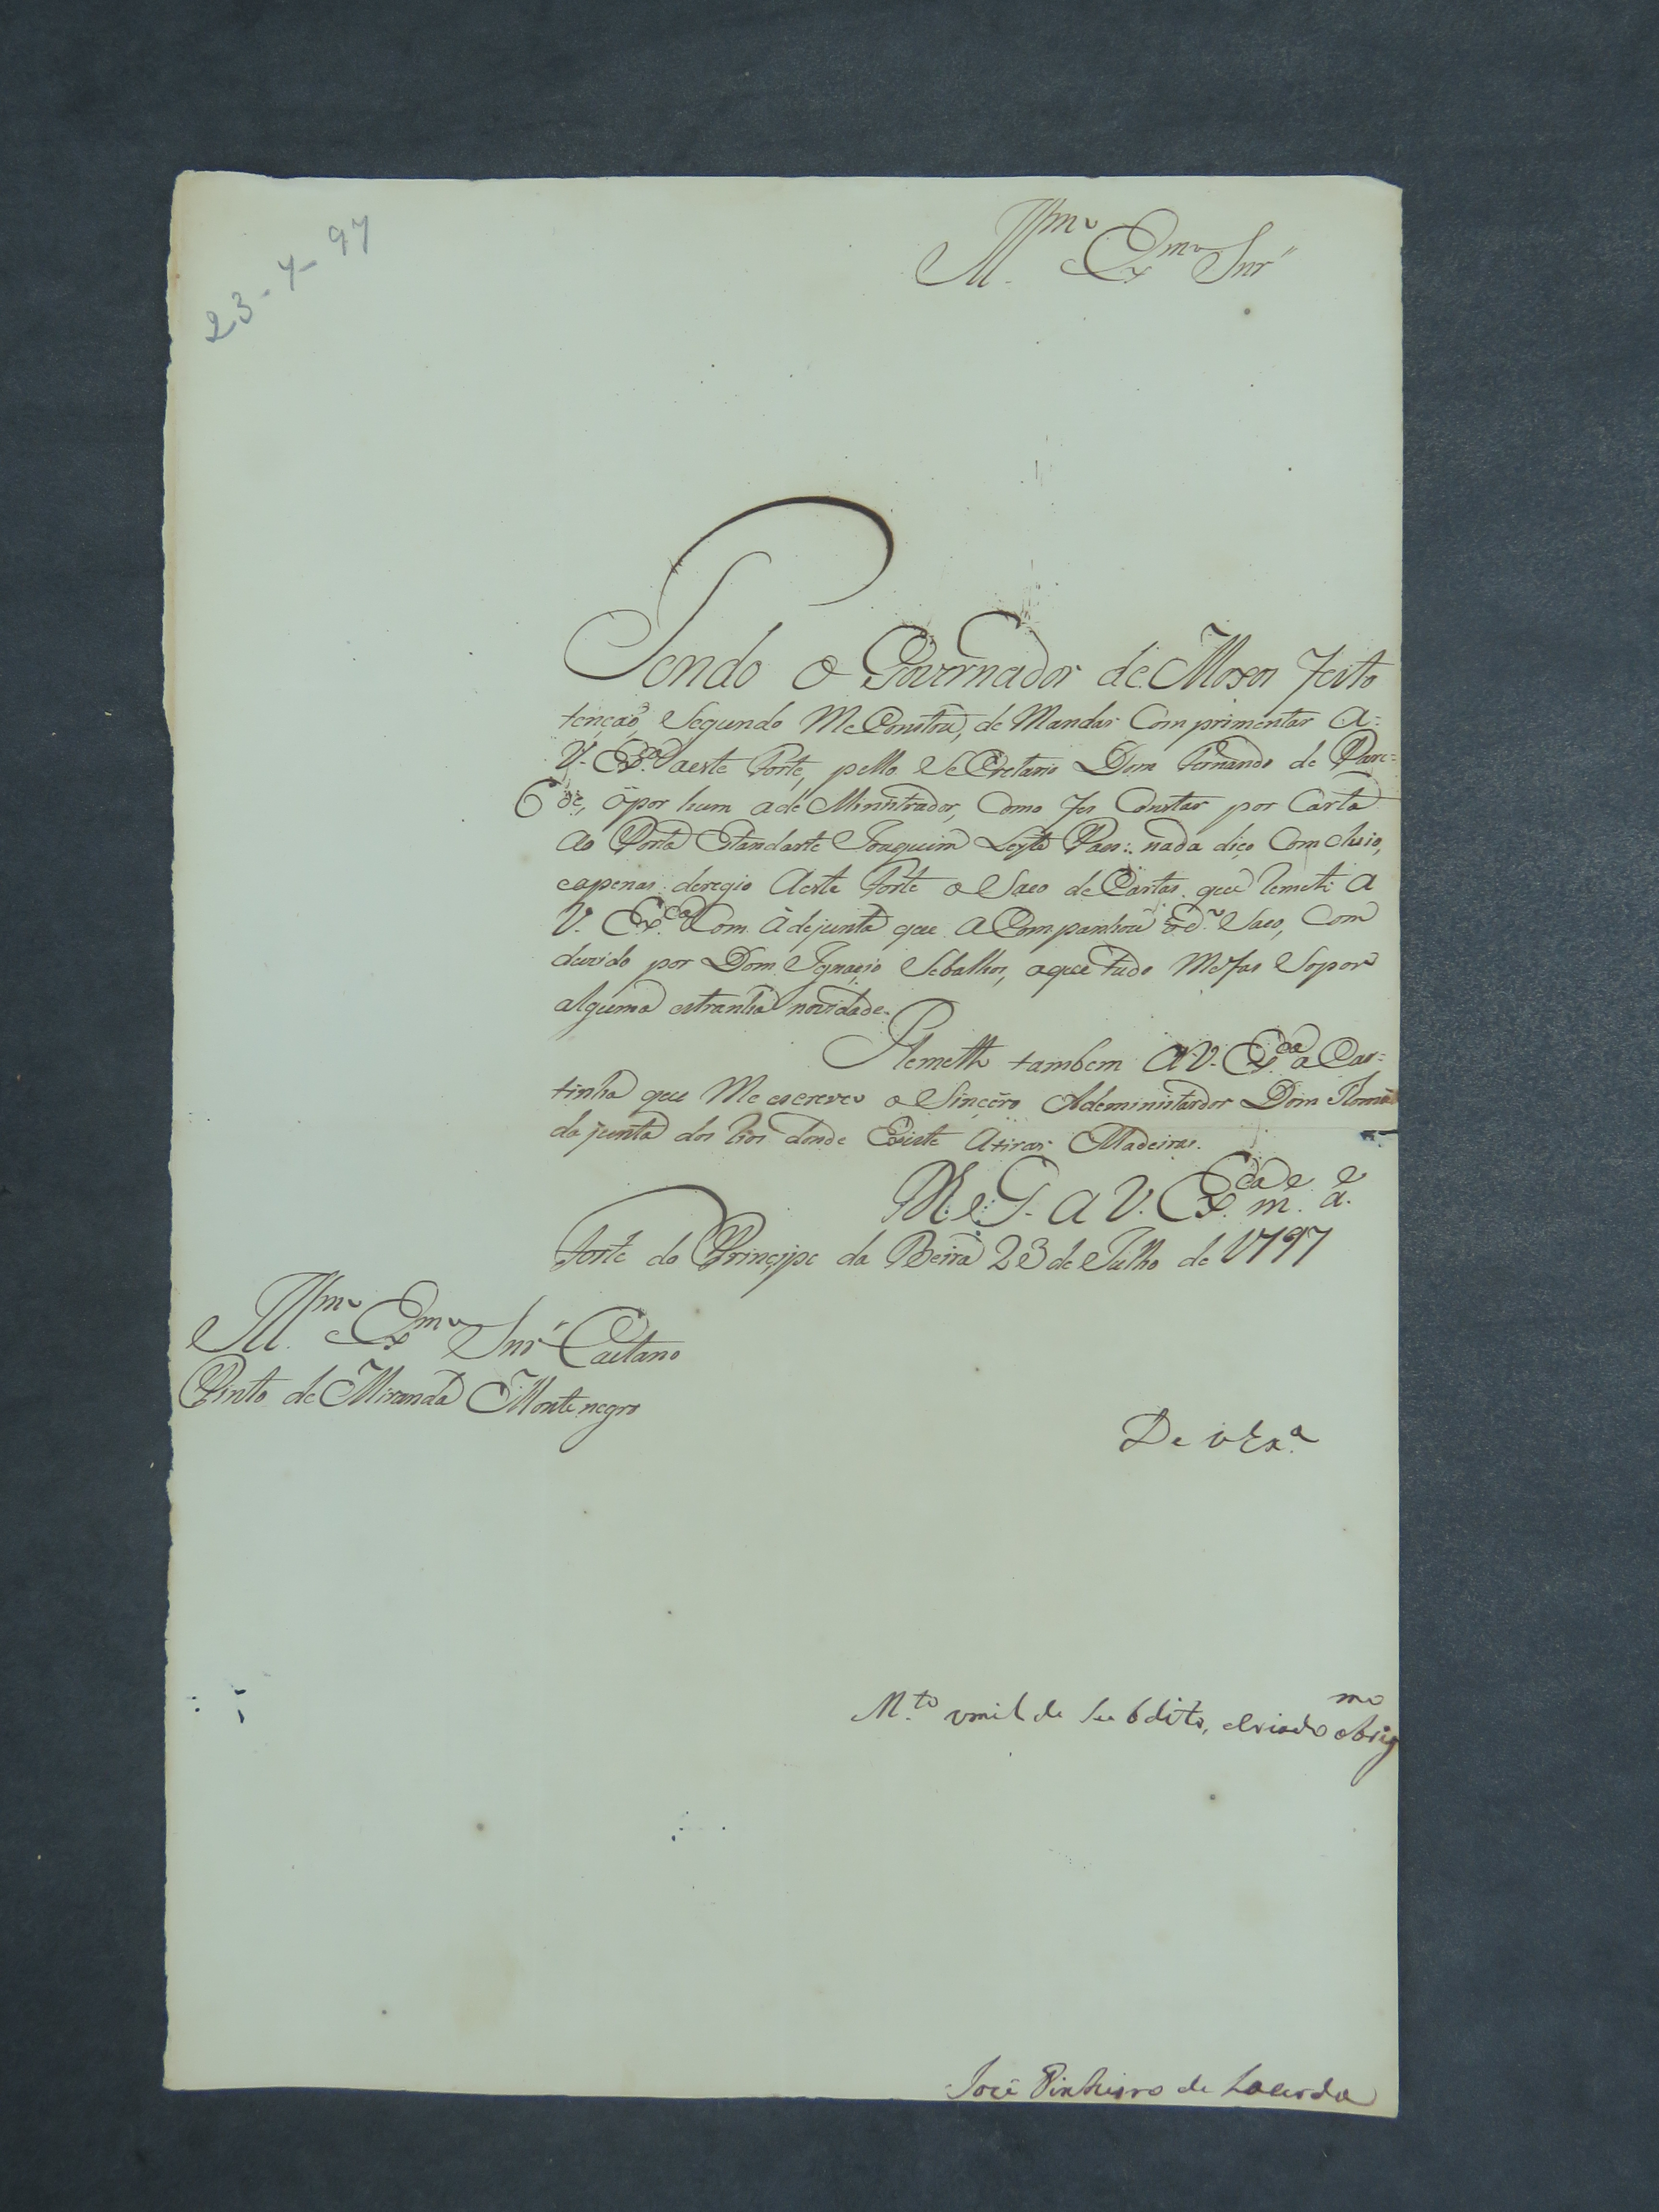 23-7-97
Ill.mo Ex.mo Snr.
Tendo o Governador de Moxos feito
tenção, segundo Me Constou, de Mandar Comprimentar a=
V. Ex.ca aeste Forte, pello SeCretario Dom Fernando de
ou por hum ade Ministrador, Como fes Constar por Carta
ao Porta Estandarte Joaquim Leyte Paes: nada diço Comcluio,
eapenas deregio Aeste Forte o Saco de Cartas que Remeti A
V. Ex.ca Com Adejunta que aCompanhou o d.o Saco, Com
duzido por Dom Ignacio Sebalhos, oque tudo Mefas Supor
alguma estranha novidade.
Remetto tambem A V. Ex.ca a Car=
tinha que Me escreveo o Sinçero Adeministardor Dom
da junta dos Rios donde Existe Atirar Madeiras.
D.s G. a V. Ex.ca m.s a.s
Forte do Prinçipe da Beira 23 de Julho de 1797
Ill.mo Ex.mo Snr. Caetano
Pinto de Miranda Montenegro
De V Ex.a
M.to umilde Subdito, eCriado obrig.mo
José Pinheiro de Lacerda